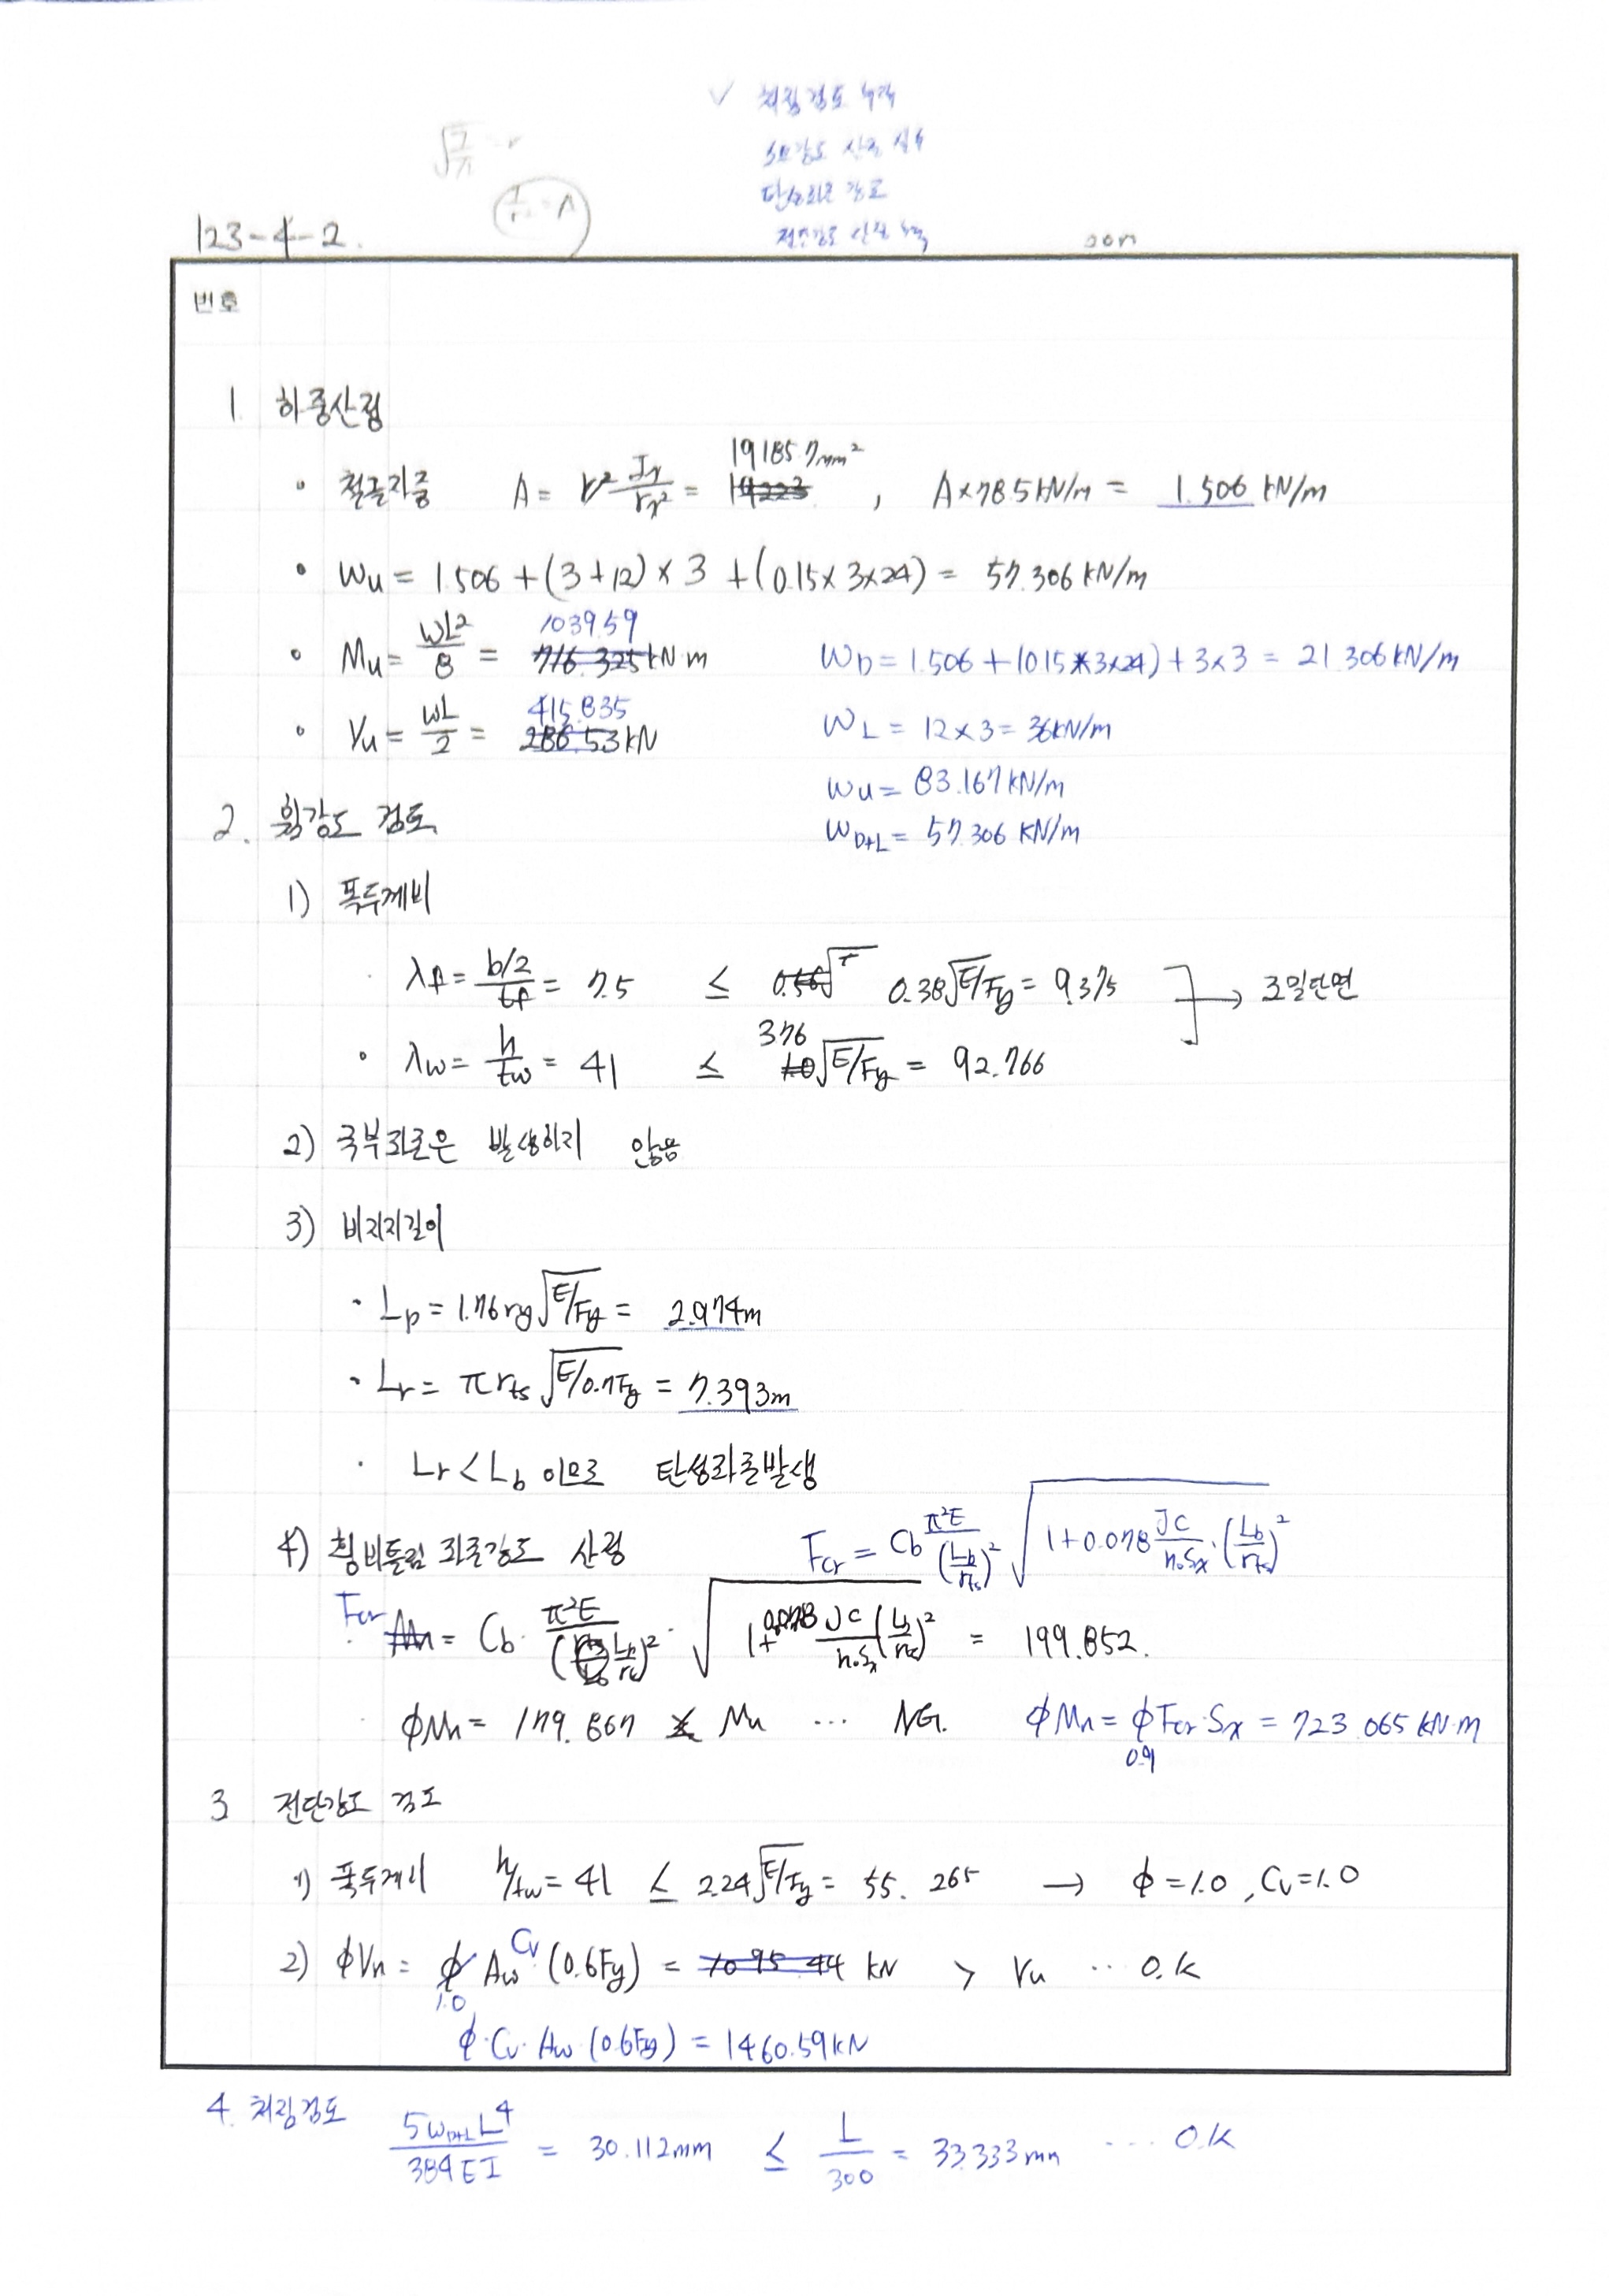 ✓ 처짐검도 누락
휨강도 산정 실수
탄성좌굴 강도
전단강도 산정 누락
√(I/A) = r
I/r² = A
123-4-2.
번호
1. 하중산정
• 철골자중 A = r² Ix/rx² = 19185.7mm² , A×78.5kN/m = 1.506 kN/m
• Wu = 1.506 + (3+12)×3 + (0.15×3×24) = 57.306 kN/m
• Mu = wL²/8 = 716.325 1039.59 kN·m
WD = 1.506 + (0.15×3×24) + 3×3 = 21.306 kN/m
• Vu = wL/2 = 286.53 415.835 kN
WL = 12×3 = 36kN/m
Wu = 83.167 kN/m
WD+L = 57.306 kN/m
2. 휨강도 검토
1) 폭두께비
· λf = (b/2)/tf = 7.5 ≤ 0.38√(E/Fy) = 9.375
• λw = h/tw = 41 ≤ 3.76√(E/Fy) = 92.766
→ 조밀단면
2) 국부좌굴은 발생하지 않음
3) 비지지길이
· Lp = 1.76ry√(E/Fy) = 2.974m
· Lr = πrts√(E/0.7Fy) = 7.393m
· Lr < Lb 이므로 탄성좌굴발생
4) 횡비틀림 좌굴강도 산정 Fcr = Cb π²E/(Lb/rts)² √(1+0.078 Jc/(hoSx)·(Lb/rts)²)
· Fcr Mn = Cb· π²E/(Lb/rts)² · √(1+0.078 Jc/(hoSx)(Lb/rts)²) = 199.852.
· φMn = 179.867 ≥ Mu … NG. φMn = φFcr·Sx = 723.065 kN·m
0.9
3 전단강도 검도
1) 폭두께비 h/tw = 41 ≤ 2.24√(E/Fy) = 55.265 → φ=1.0, Cv=1.0
2) φVn = φ Aw Cv (0.6Fy) = 1095.44 kN > Vu ·· O.K
1.0
φ·Cv·Aw (0.6Fy) = 1460.59kN
4. 처짐검도 5wD+L L⁴/384EI = 30.112mm ≤ L/300 = 33.333mm ··· O.K